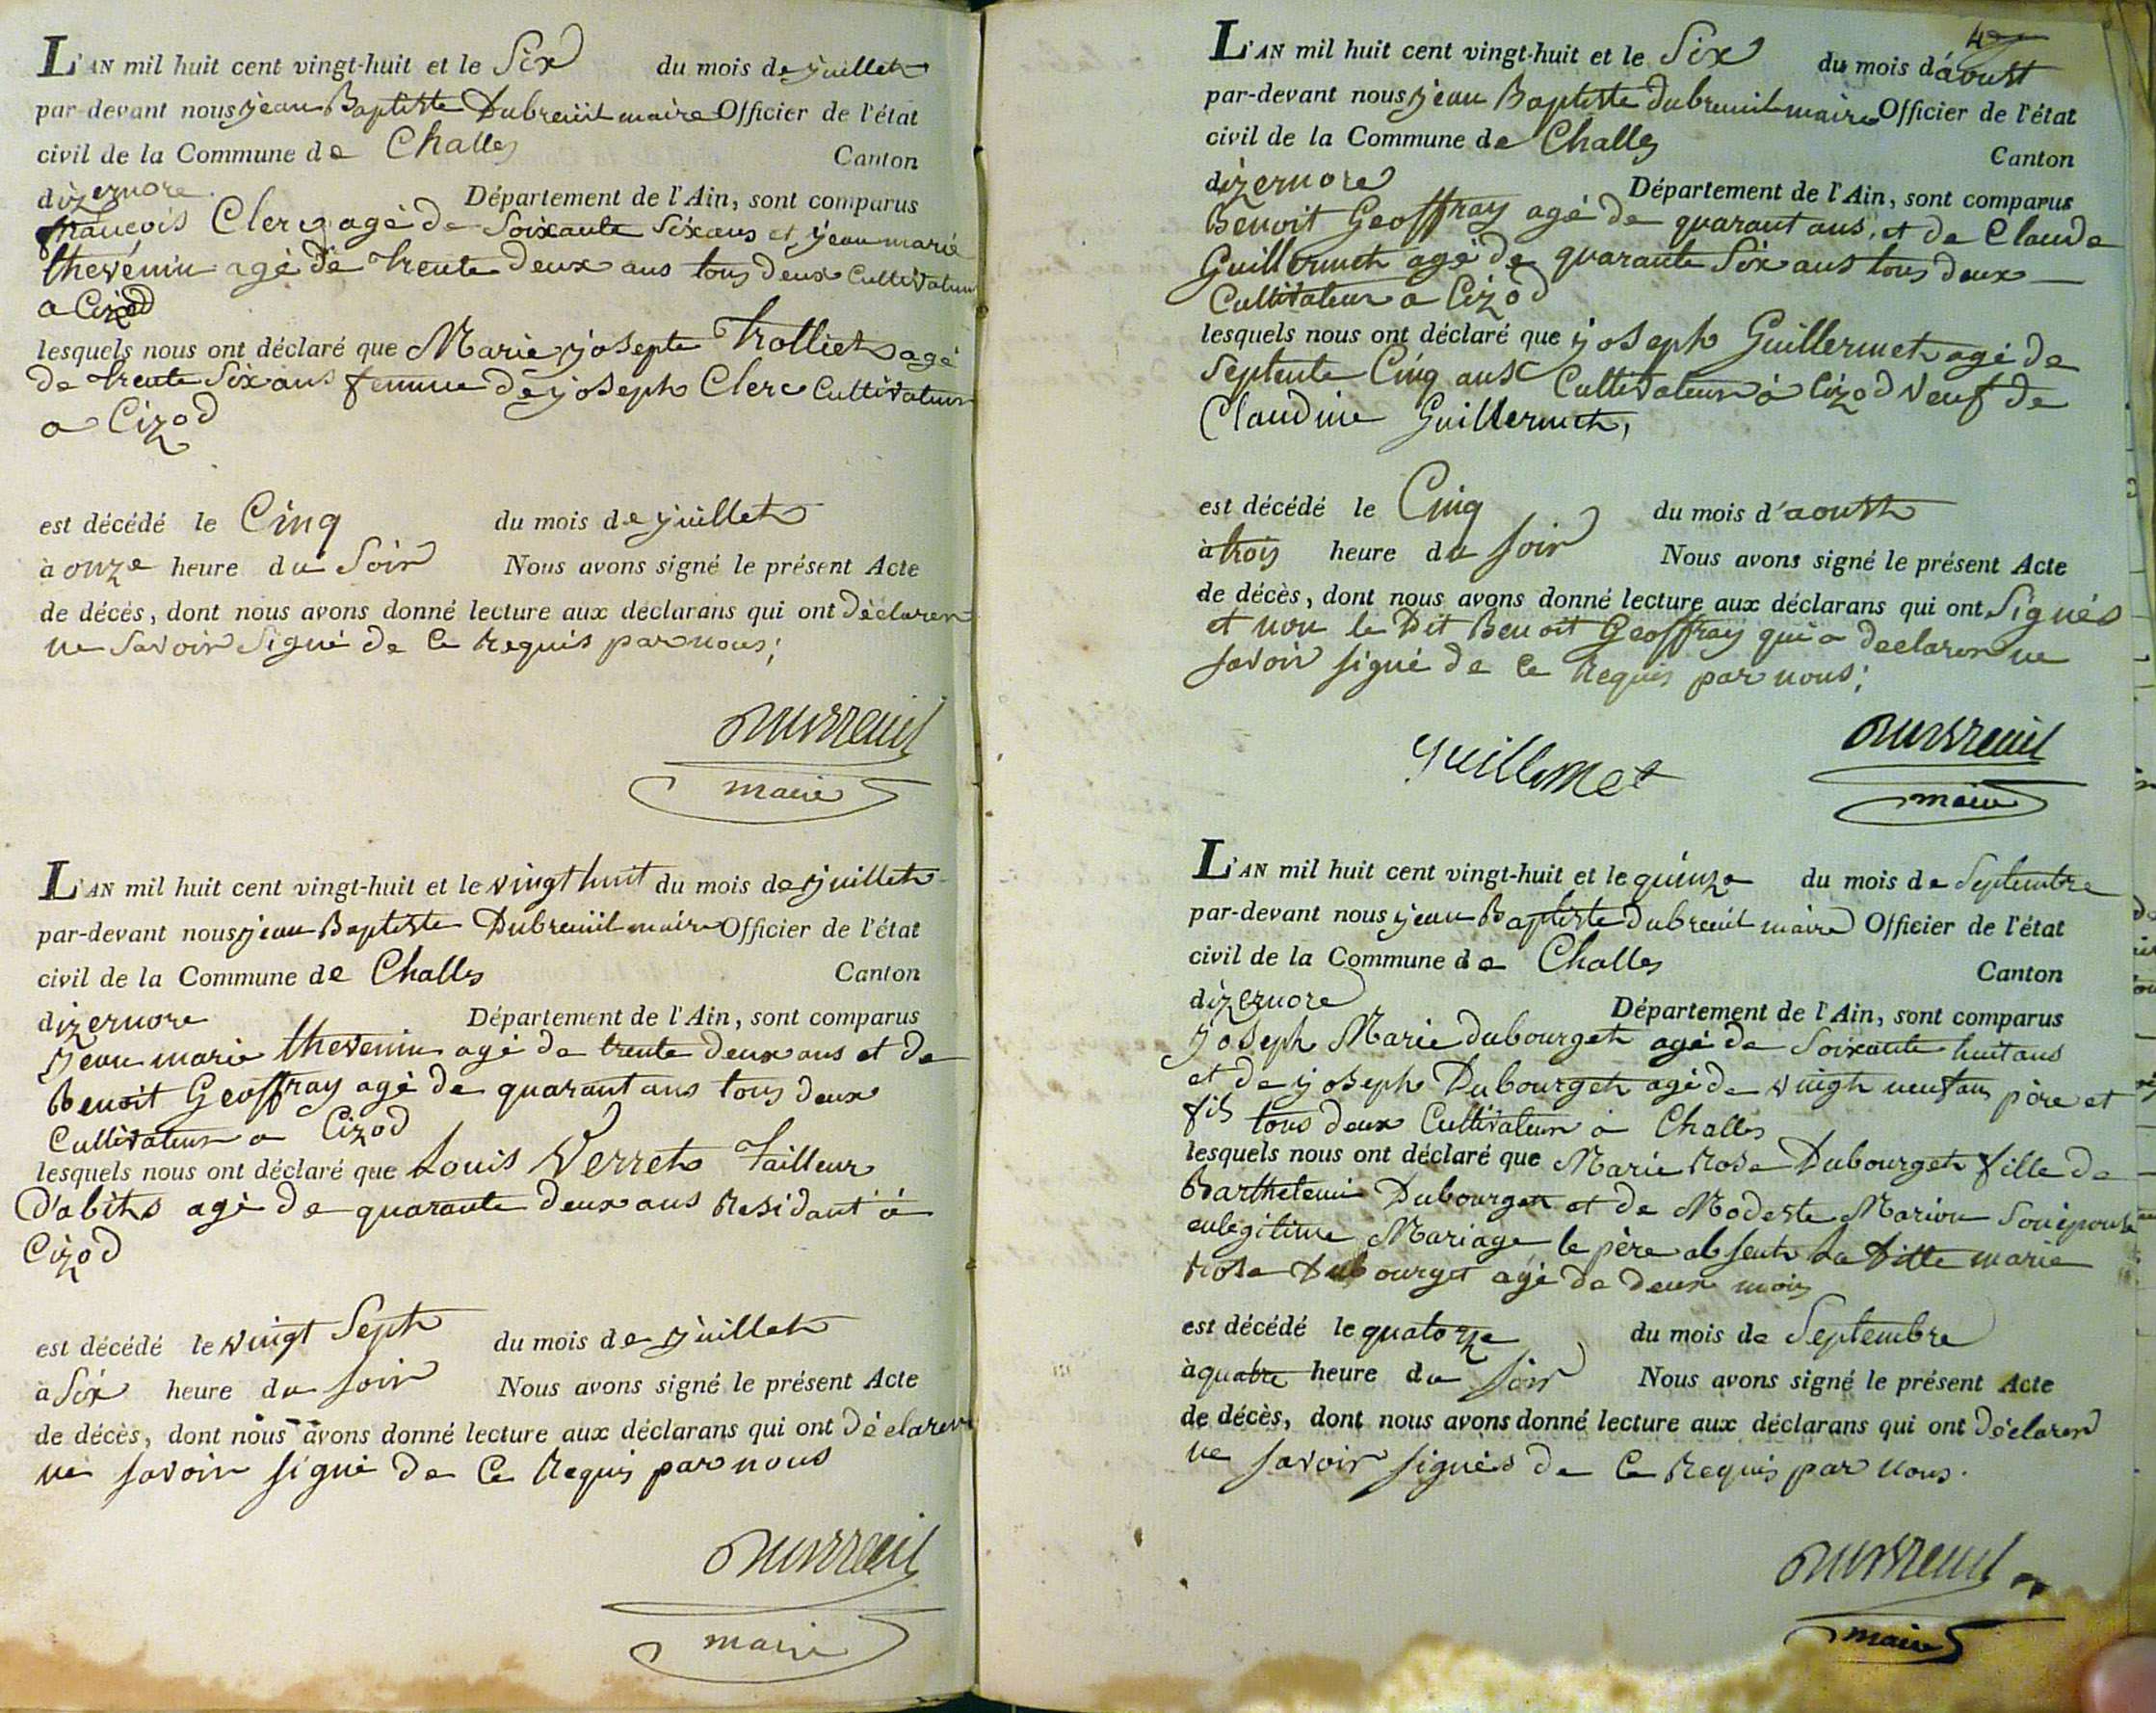 L'AN mil huit cent vingt-huit et le Six du mois de juillet
par-devant nous jean Baptiste Dubreüil maire Officier de l'état
civil de la Commune de Challes Canton
dizernore Département de l'Ain, sont comparus
francois Clerc agé de Soixante Six ans et jean marie
thevénin agé de trente deux ans tous deux Cultivateur
a Cizod
lesquels nous ont déclaré que Marie josepte Trolliet agé
de trente Six ans femme de joseph Clerc Cultivateur
a Cizod
est décédé le Cinq du mois de juillet
à onze heure du Soir Nous avons signé le présent Acte
de décès, dont nous avons donné lecture aux déclarans qui ont déclarer
ne Savoir Signé de Ce Requis par nous;
Dubreuil
maire
L'AN mil huit cent vingt-huit et le vingt huit du mois de juillet
par-devant nous jean Baptiste Dubreüil maire Officier de l'état
civil de la Commune de Challes Canton
dizernore Département de l'Ain, sont comparus
jean marie thevenin agé de trente deux ans et de
Benoit Geoffray agé de quarant ans tous deux
Cultivateur a Cizod
lesquels nous ont déclaré que Louis Verret Tailleur
D'abits agé de quarante deux ans Residant à
Cizod
est décédé le vingt Sept du mois de juillet
à Six heure du soir Nous avons signé le présent Acte
de décès, dont nous avons donné lecture aux déclarans qui ont déclarer
ne savoir signé de Ce Requis par nous
Dubreuil
maire
4
L'AN mil huit cent vingt-huit et le Six du mois d'aoust
par-devant nous jean Baptiste dubreuil maire Officier de l'état
civil de la Commune de Challes Canton
dizernore Département de l'Ain, sont comparus
Benoit Geoffray agé de quarant ans, et de Claude
Guillermet agé de quarante Six ans tous deux
Cultivateur a Cizod
lesquels nous ont déclaré que joseph Guillermet agé de
Septente Cinq ans Cultivateur à Cizod veuf de
Claudine Guillermet,
est décédé le Cinq du mois d'aoust
à trois heure du soir Nous avons signé le présent Acte
de décès, dont nous avons donné lecture aux déclarans qui ont Signés
et non le Dit Benoit Geoffray qui a declarer ne
savoir signé de Ce Requis par nous;
guillermet
Dubreuil
maire
L'AN mil huit cent vingt-huit et le quinze du mois de Septembre
par-devant nous jean Baptiste dubreuil maire Officier de l'état
civil de la Commune de Challes Canton
dizernore Département de l'Ain, sont comparus
joseph Marie dubourget agé de Soixante huit ans
et de joseph Dubourget agé de vingt neuf ans père et
fils tous deux Cultivateur a Challes
lesquels nous ont déclaré que Marie Rose Dubourget fille de
Barthelemi Dubourget et de Modeste Marion Son épouse
en legitime Mariage le père absent La Ditte marie
Rose Dubourget agé de deux mois
est décédé le quatorze du mois de Septembre
à quatre heure du soir Nous avons signé le présent Acte
de décès, dont nous avons donné lecture aux déclarans qui ont déclarer
ne savoir signés de Ce Requis par nous.
Dubreuil
maire